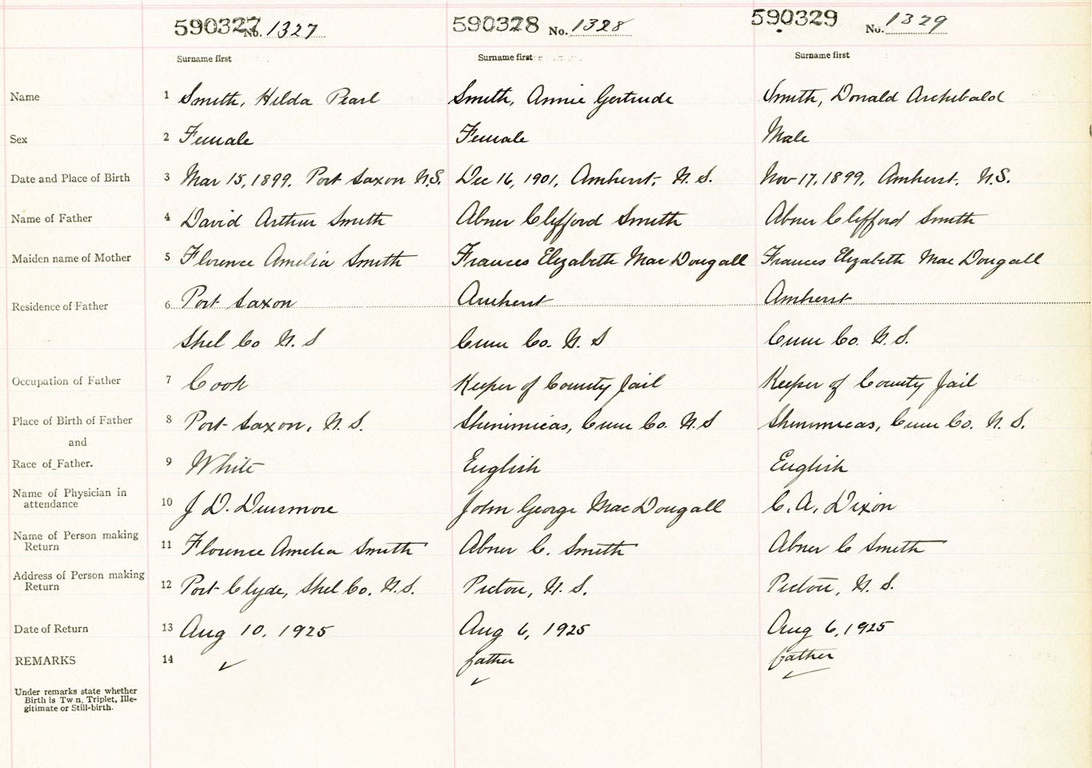 590327 No. 1327 590328 No. 1328 590329 No. 1329
Surname first Surname first Surname first
Name 1 Smith, Hilda Pearl Smith, Annie Gertrude Smith, Donald Archibald
Sex 2 Female Female Male
Date and Place of Birth 3 Mar 15, 1899. Port Saxon N.S. Dec 16, 1901, Amherst, N.S. Nov 17, 1899, Amherst, N.S.
Name of Father 4 David Arthur Smith Abner Clifford Smith Abner Clifford Smith
Maiden name of Mother 5 Florence Amelia Smith Frances Elizabeth MacDougall Frances Elizabeth MacDougall
Residence of Father 6 Port Saxon Amherst Amherst
Shel Co N.S Cum Co. N.S Cum Co. N.S.
Occupation of Father 7 Cook Keeper of County Jail Keeper of County Jail
Place of Birth of Father 8 Port Saxon, N.S. Shinimicas, Cum Co. N.S Shinimicas, Cum Co. N.S.
and
Race of Father. 9 White English English
Name of Physician in
attendance 10 J D. Densmore John George MacDougall C. A. Dixon
Name of Person making
Return 11 Florence Amelia Smith Abner C. Smith Abner C Smith
Address of Person making
Return 12 Port Clyde, Shel Co. N.S. Pictou, N.S. Pictou, N.S.
Date of Return 13 Aug 10. 1925 Aug 6, 1925 Aug 6, 1925
REMARKS 14 ✓ father father
✓ ✓
Under remarks state whether
Birth is Twn, Triplet, Ille-
gitimate or Still-birth.